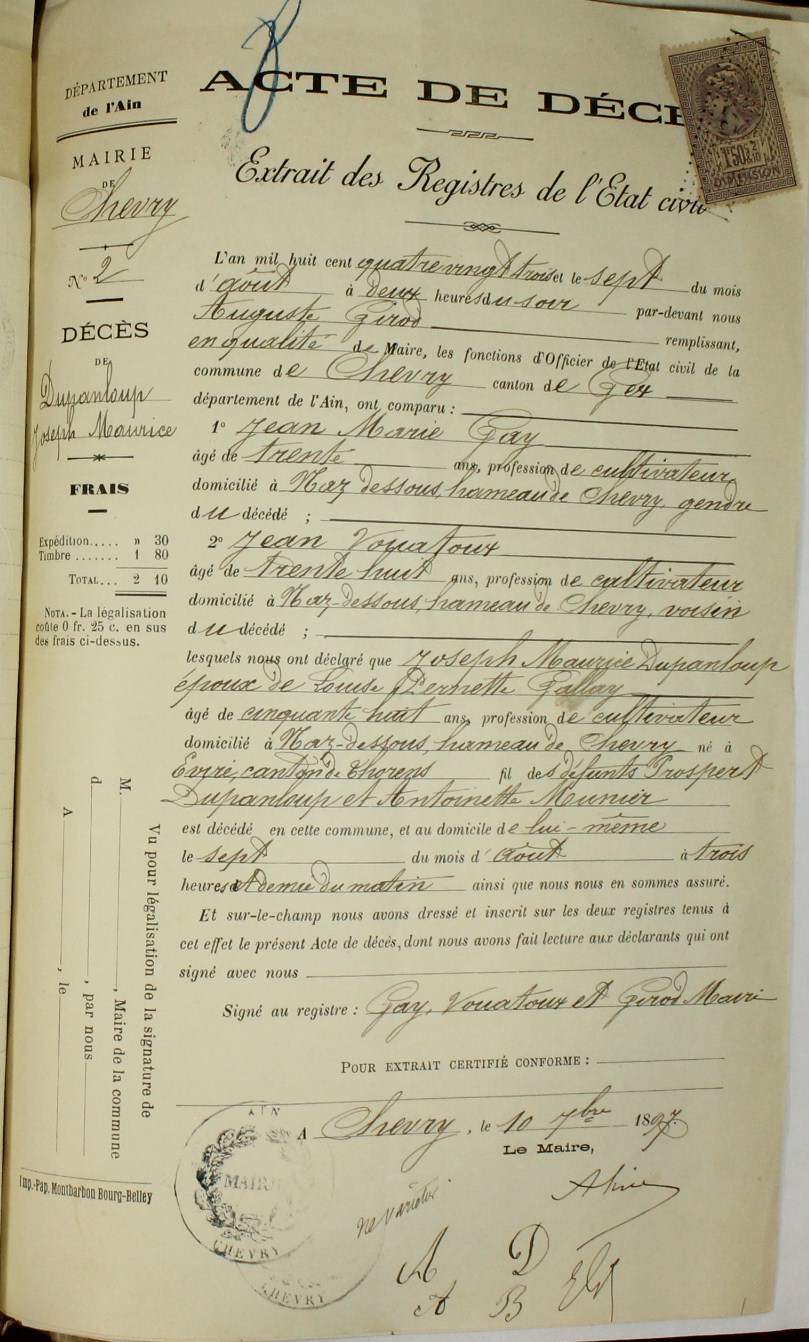 DÉPARTEMENT
de l'Ain
MAIRIE
DE
Chevry
N° 2
DÉCÈS
DE
Dupanloup
Joseph Maurice
FRAIS
Expédition..... » 30
Timbre ....... 1 80
TOTAL... 2 10
NOTA. - La légalisation
coûte 0 fr. 25 c. en sus
des frais ci-dessus.
Vu pour légalisation de la signature de
M. , Maire de la commune
d , par nous
A , le
Imp.-Pap. Montbarbon Bourg-Belley
ACTE DE DÉCÈ
Extrait des Registres de l'Etat civil
L'an mil huit cent quatre vingt trois et le sept du mois
d'août à deux heures du soir par-devant nous
Auguste Girod remplissant,
en qualité de Maire, les fonctions d'Officier de l'Etat civil de la
commune de Chevry canton de Gex
département de l'Ain, ont comparu :
1° Jean Marie Gay
âgé de trente ans, profession de cultivateur
domicilié à Naz dessous, hameau de Chevry, gendre
du décédé ;
2° Jean Vouatoux
âgé de trente huit ans, profession de cultivateur
domicilié à Naz-dessous, hameau de Chevry, voisin
du décédé ;
lesquels nous ont déclaré que Joseph Maurice Dupanloup
époux de Louise Pernette Gallay
âgé de cinquante huit ans, profession de cultivateur
domicilié à Naz-dessous, hameau de Chevry né à
Evire, canton de Thorens fil des défunts Prospert
Dupanloup et Antoinette Munier
est décédé en cette commune, et au domicile de lui-même
le sept du mois d'août à trois
heures et demie du matin ainsi que nous nous en sommes assuré.
Et sur-le-champ nous avons dressé et inscrit sur les deux registres tenus à
cet effet le présent Acte de décès, dont nous avons fait lecture aux déclarants qui ont
signé avec nous
Signé au registre : Gay, Vouatoux et Girod Maire
POUR EXTRAIT CERTIFIÉ CONFORME :
A Chevry, le 10 7bre 1897.
Le Maire,
ne varietur
A D
A B
AIN
MAIRIE
CHEVRY
CHEVRY
1F50
DIMENSION